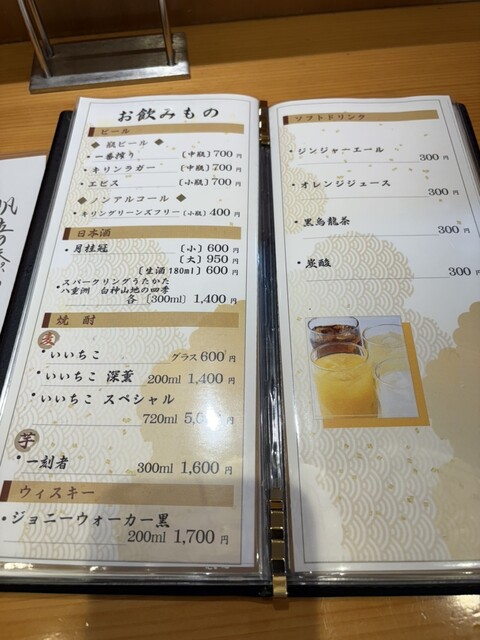 お飲みもの
ビール
◆ 瓶ビール ◆
・一番搾り 〔中瓶〕700円
・キリンラガー 〔中瓶〕700円
・ヱビス 〔小瓶〕700円
◆ノンアルコール◆
・キリングリーンズフリー〔小瓶〕400円
日本酒
・月桂冠 〔小〕600円
〔大〕950円
〔生酒180ml〕600円
・スパークリングうたかた
八重洲 白神山地の四季
各〔300ml〕1,400円
焼酎
麦
・いいちこ グラス600円
・いいちこ 深薫 200ml 1,400円
・いいちこ スペシャル
720ml 5, 円
芋
・一刻者 300ml 1,600円
ウィスキー
・ジョニーウォーカー黒
200ml 1,700円
ソフトドリンク
・ジンジャーエール
300円
・オレンジジュース
300円
・黒烏龍茶
300円
・炭酸
300円